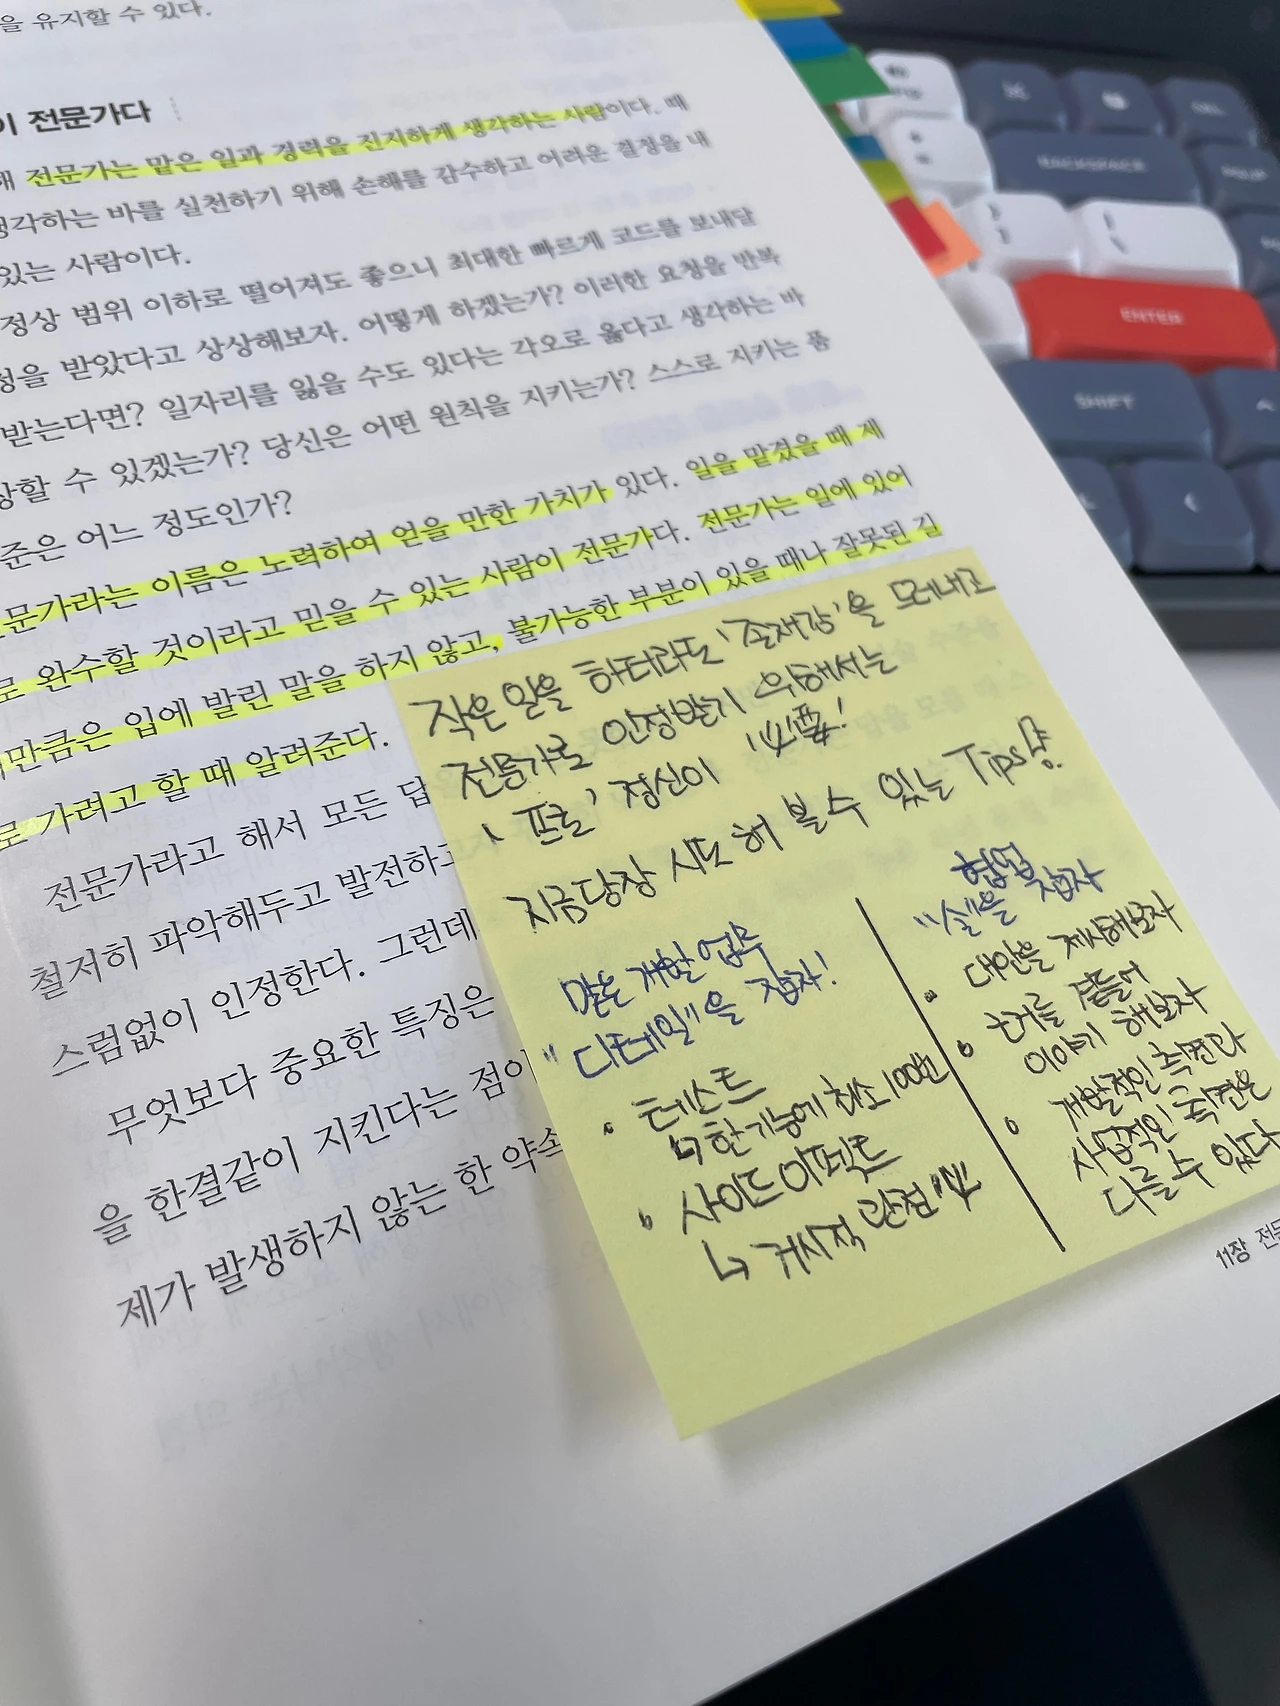 을 유지할 수 있다.
이 전문가다
해 전문가는 맡은 일과 경력을 진지하게 생각하는 사람이다. 때
생각하는 바를 실천하기 위해 손해를 감수하고 어려운 결정을 내
있는 사람이다.
정상 범위 이하로 떨어져도 좋으니 최대한 빠르게 코드를 보내달
청을 받았다고 상상해보자. 어떻게 하겠는가? 이러한 요청을 반복
받는다면? 일자리를 잃을 수도 있다는 각오로 옳다고 생각하는 바
상할 수 있겠는가? 당신은 어떤 원칙을 지키는가? 스스로 지키는 품
준은 어느 정도인가?
문가라는 이름은 노력하여 얻을 만한 가치가 있다. 일을 맡겼을 때 제
로 완수할 것이라고 믿을 수 있는 사람이 전문가다. 전문가는 일에 있어
만큼은 입에 발린 말을 하지 않고, 불가능한 부분이 있을 때나 잘못된 길
로 가려고 할 때 알려준다.
전문가라고 해서 모든 답
철저히 파악해두고 발전하고
스럼없이 인정한다. 그런데
무엇보다 중요한 특징은
을 한결같이 지킨다는 점이
제가 발생하지 않는 한 약속
작은 일을 하더라도 '존재감'을 드러내고
전문가로 인정받기 위해서는
'프로' 정신이 必要!
지금당장 시도 해 볼 수 있는 Tips
맡은 개발 업무
"디테일"을 잡자!
• 테스트
↳ 한 기능에 최소 100번
• 사이드이펙트
↳ 거시적 관점
협업
"실"을 잡자
• 대안을 제시해보자
• 근거를 곁들어
이야기 해보자
• 개발적인 측면과
사업적인 측면은
다를 수 있다
11장 전문
BACKSPACE
ENTER
SHIFT